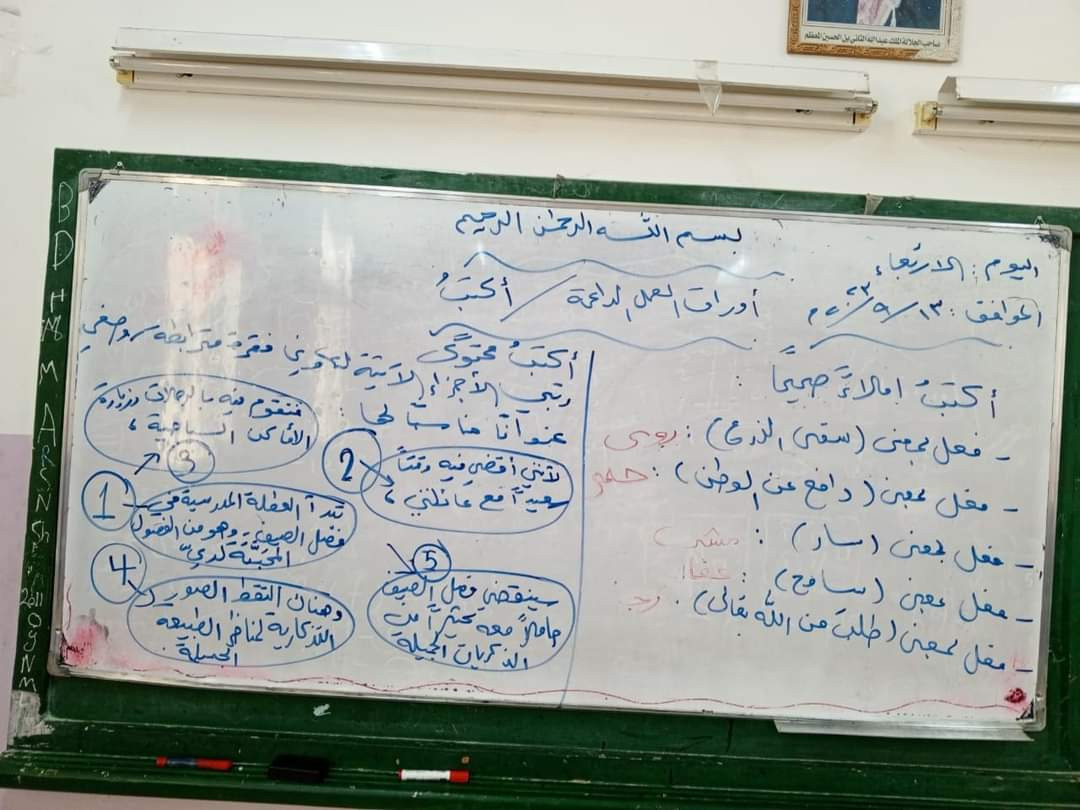 صاحب الجلالة الملك عبدالله الثاني ابن الحسين المعظم
بسم الله الرحمن الرحيم
اليوم : الاربعاء
الموافق : ١٣/٩/٢٠٢٣ م
أوراق العمل الداعمة / أكتبُ
أكتبُ إملاءً صحيحًا :
- فعل بمعنى (سقى الزرع) : روى
- فعل بمعنى (دافع عن الوطن) : حمى
- فعل بمعنى (سار) : مشى
- فعل بمعنى (سامح) : عفا
- فعل بمعنى (طلبَ من الله تعالى) :
أكتبُ محتوًى
رتبي الأجزاء الآتية لتكوين فقرة مترابطة، وضعي
عنوانًا مناسبًا لها :
فنقوم فيه بالرحلات وزيارة
الأماكن السياحية ،
3
2
لأنني أقضي فيه وقتاً
سعيداً مع عائلتي ،
1
تبدأ العطلة المدرسية في
فصل الصيف، وهو من الفصول
المحببَّة لديّ
4
وهناك التقط الصور
التذكارية لمناظر الطبيعة
الجميلة
5
سينقضي فصل الصيف
حاملاً معه كثيراً من
الذكريات الجميلة